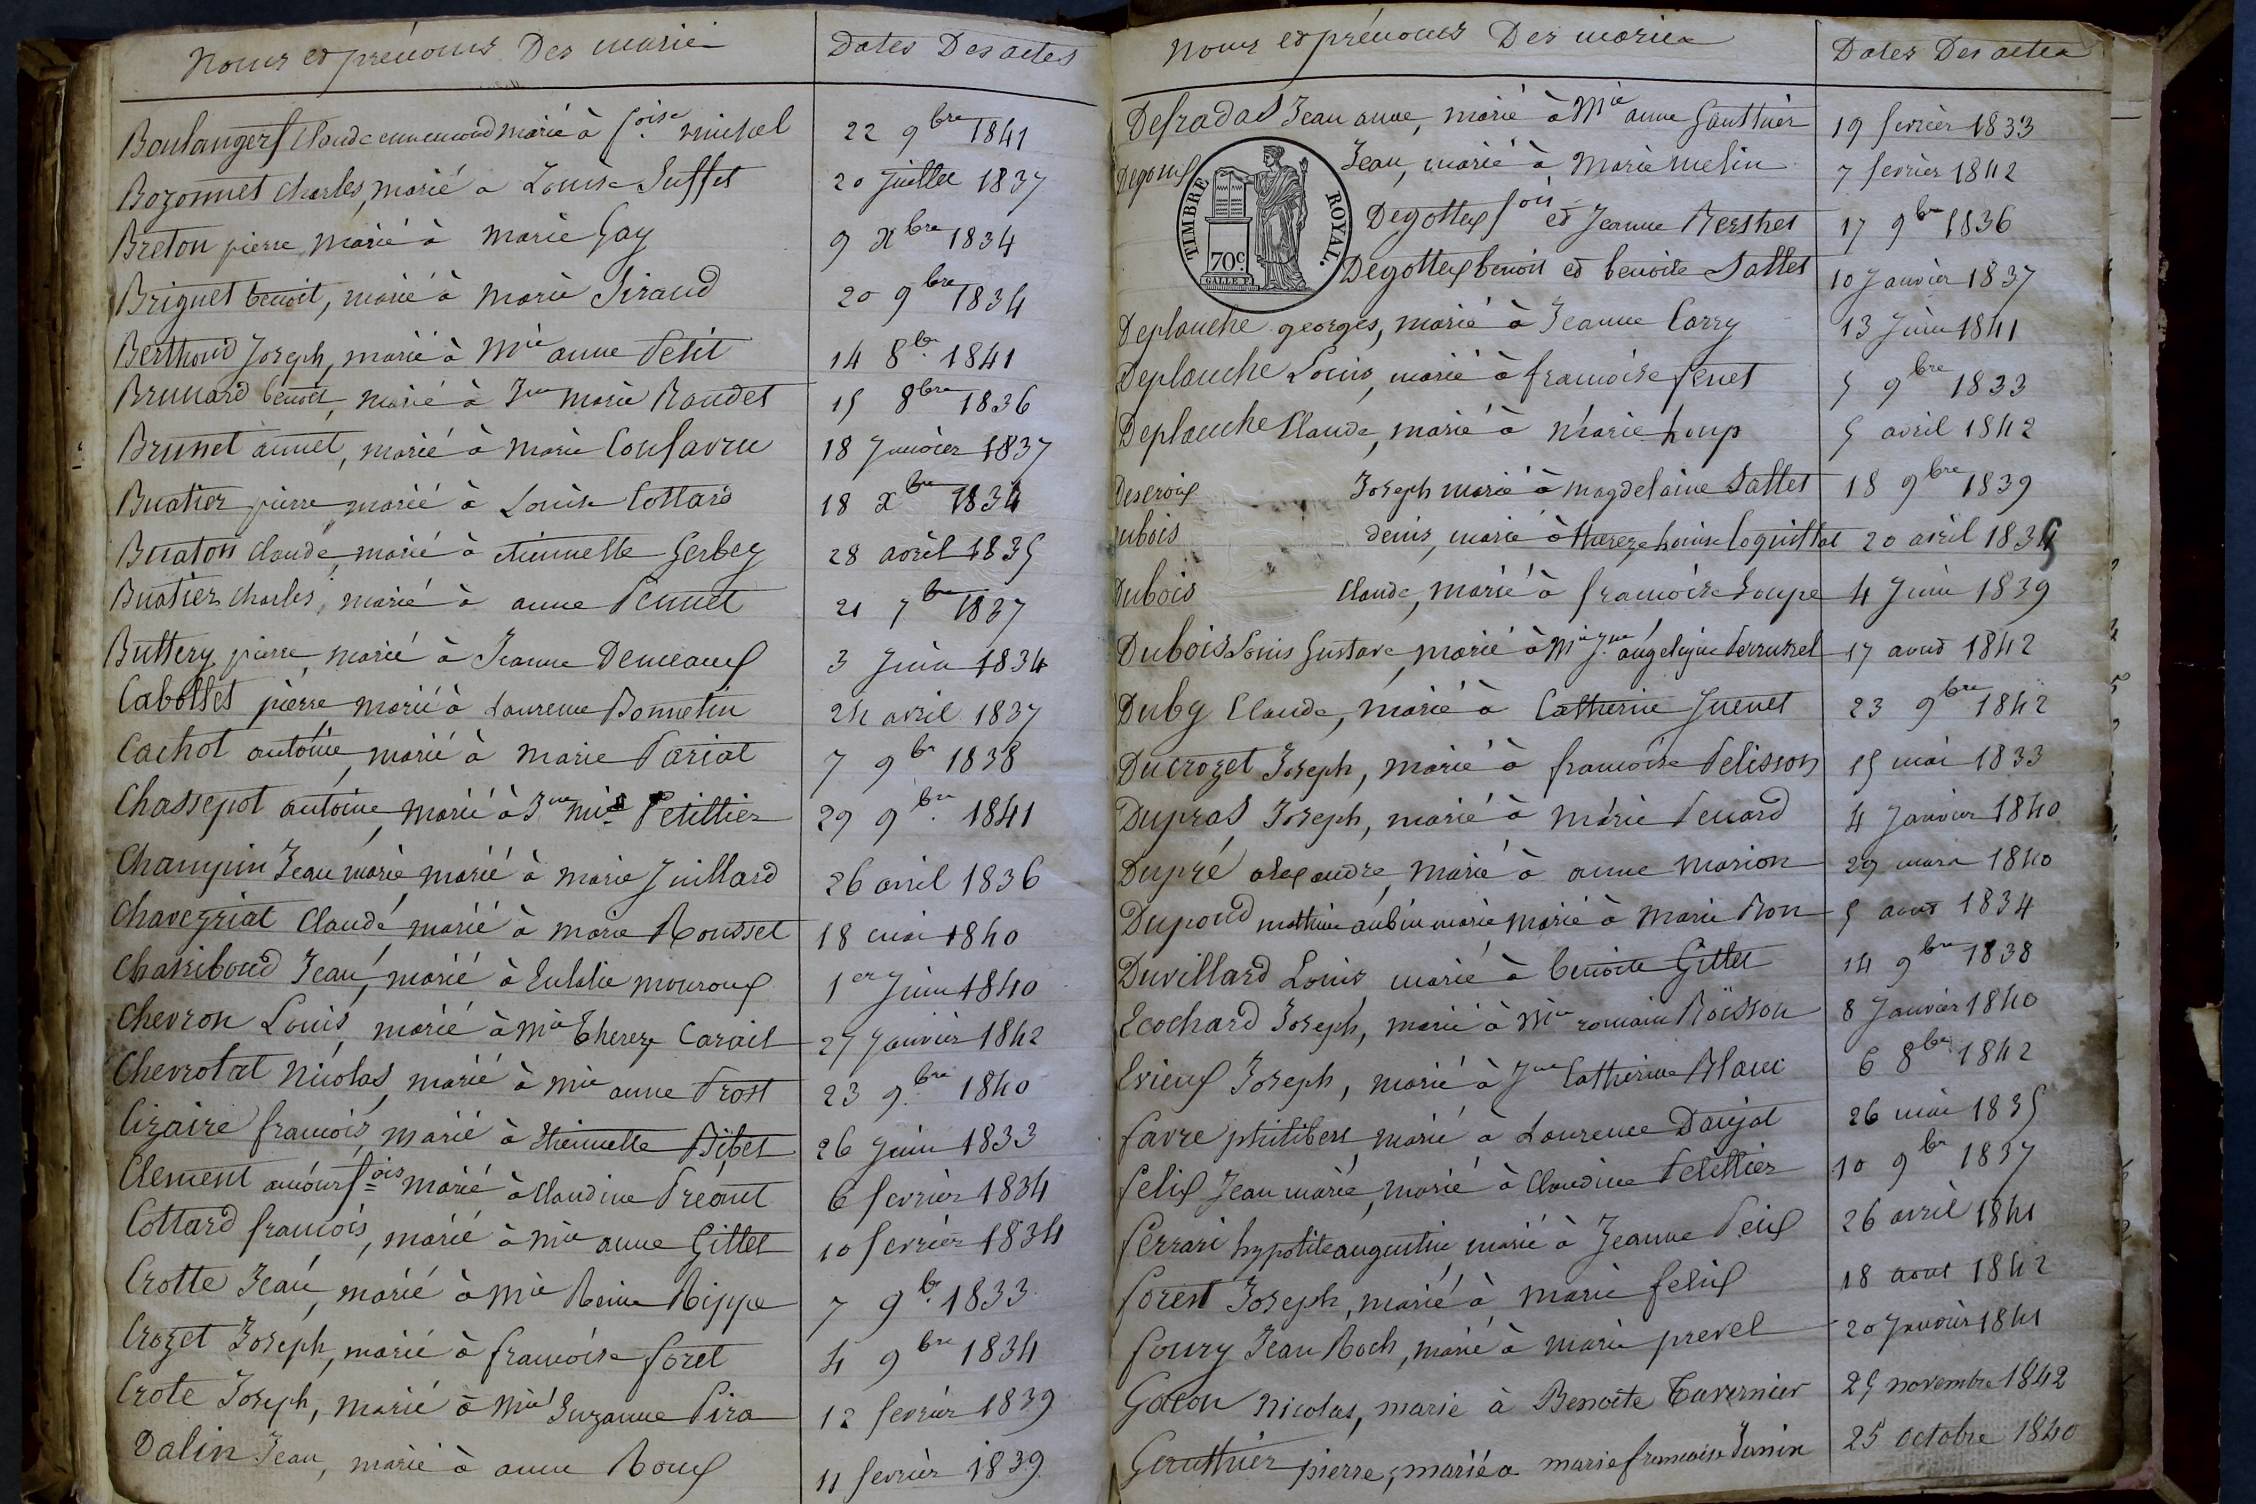 Noms et prénoms Des marié
Dates Des actes
Boulanger Claude ennemond marié à f.oise michel 22 9bre 1841
Bozonnet Charles, marié a Louise Suffet 20 Juillet 1837
Breton pierre, marié à marie Gay 9 xbre 1834
Briguet benoit, marié à marie Siraud 20 9bre 1834
Berthoud Joseph, marié à Mie anne Petit 14 8b. 1841
Brunard benoit, marié à Jne marie Raudet 15 8bre 1836
Brunet annet, marié à marie Confavru 18 Janvier 1837
Buatier pierre, marié à Louise Cottard 18 xbre 1834
Buaton Claude, marié à etiennette Gerbey 28 avril 1835
Buatier Charles, marié à anne Pennet 21 7bre 1837
Buttery pierre, marié à Jeanne Demeaux 3 Juin 1834
Cabottet pierre marié à Laurence Bonnetin 24 avril 1837
Cachot antoine, marié à marie Pariat 7 9b 1838
Chassepot antoine, marié à Jne mie Petillier 29 9bre 1841
Champin Jean marie, marié à marie Juillard 26 avril 1836
Chaveyriat Claude marié à marie Rousset 18 mai 1840
Chatriboud Jean, marié à Eulalie mouroux 1er Juin 1840
Chevron Louis, marié à Mie Thereze Carail 27 Janvier 1842
Chevrolat Nicolas, marié à mie anne Prost 23 9bre 1840
Cizaire francois, marié à Etiennette Bibet 26 Juin 1833
Clement amour fois marié à Claudine Préant 6 fevrier 1834
Cottard francois, marié à mie anne Gillet 10 fevrier 1834
Crotte Jean, marié à Mie Reine Rippe 7 9b. 1833
Crozet Joseph, marié à francoise foret 4 9bre 1834
Crote Joseph, marié à Mie Suzanne Pira 12 fevrier 1839
Dalin Jean, marié à anne Roux 11 fevrier 1839
Noms et prénoms Des mariés
Dates Des actes
Defradas Jean anne, marié à Mie anne Gautthier 19 fevrier 1833
Degoux Jean, marié à Marie melin 7 fevrier 1842
Degottex fois et Jeanne Berthet 17 9bre 1836
Degottex benoit et benoite Sallet 10 Janvier 1837
TIMBRE ROYAL.
70c.
Deplanche georges, marié à Jeanne Carry 13 Juin 1841
Deplanche Louis, marié à francoise fenet 5 9bre 1833
Deplanche Claude, marié à Marie Loup 5 avril 1842
Descroix Joseph marié à magdelaine Sallet 18 9bre 1839
ubois denis, marié à thereze Louise 20 avril 1835
Dubois Claude, marié à francoise Loupe 4 Juin 1839
Dubois Louis Gustave, marié à Mie Jne angelique 17 aout 1842
Duby Claude, marié à Catherine Juenet 23 9bre 1842
Ducrozet Joseph, marié à francoise Pelisson 15 mai 1833
Dupras Joseph, marié à Marie Penard 4 Janvier 1840
Dupré alexandre, marié à anne Marion 29 mars 1840
Dupond aubin marie marié à Marie Ron 5 aout 1834
Duvillard Louis marié à benoite Gillet 14 9bre 1838
Ecochard Joseph, marié à Mie romain Roïsson 8 Janvier 1840
Evieux Joseph, marié à Jne Catherine Blanc 6 8bre 1842
favre philibert, marié a Laurence Daujat 26 mai 1835
felix Jean marie, marié à Claudine Petillier 10 9bre 1837
ferrari hypolite augustin, marié à Jeanne Peix 26 avril 1841
forest Joseph, marié à marie felix 18 aout 1842
foury Jean Roch, marié à marie prevel 20 Janvier 1841
Gacon Nicolas, marié à Benoîte Tavernier 25 novembre 1842
Gauthier pierre, marié a marie francoise Janin 25 octobre 1840